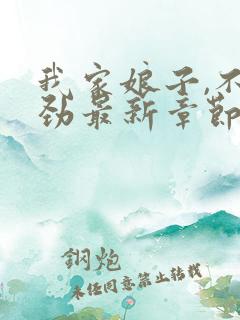 我家娘子,不
劲最新章节
鋼炮
未经同意禁止转载